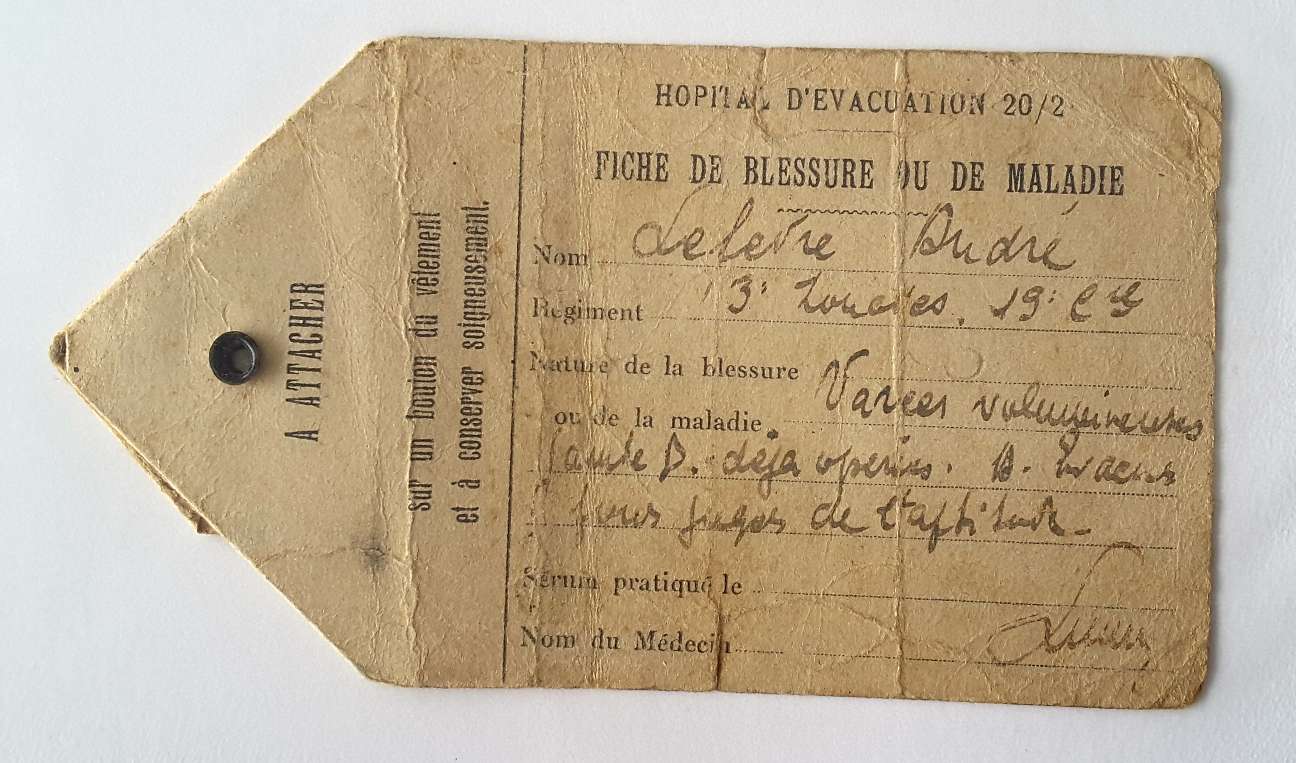 A ATTACHER
sur un bouton du vêtement
et à conserver soigneusement.
HOPITAL D'EVACUATION 20/2
FICHE DE BLESSURE OU DE MALADIE
Nom Lefevre André
Régiment 3e Zouaves. 19e Cie
Nature de la blessure
ou de la maladie. Varices volumineuses
jambe D. déjà opérées. A. Evacuer
pour juger de l'aptitude
Sérum pratiqué le
Nom du Médecin